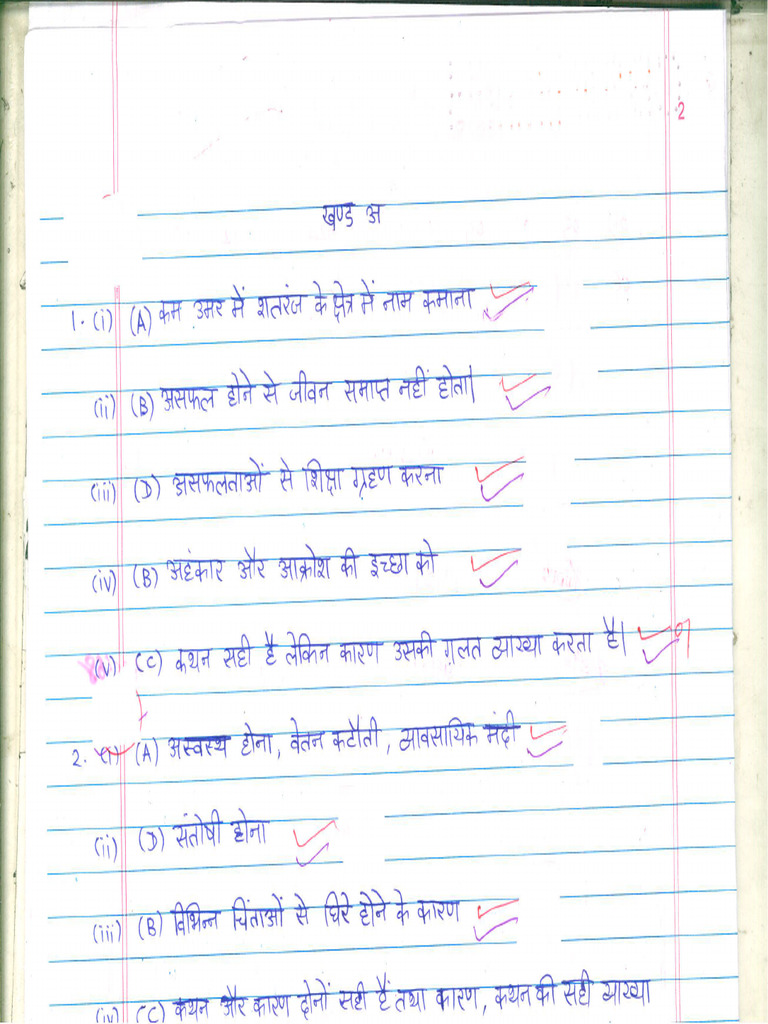 2
खण्ड अ
1. (i) (A) कम उमर में शतरंज के क्षेत्र में नाम कमाना
(ii) (B) असफल होने से जीवन समाप्त नहीं होता।
(iii) (D) असफलताओं से शिक्षा ग्रहण करना
(iv) (B) अहंकार और आक्रोश की इच्छा को
(v) (C) कथन सही है लेकिन कारण उसकी ग़लत व्याख्या करता है।
2. (i) (A) अस्वस्थ होना, वेतन कटौती, व्यावसायिक मंदी
(ii) (D) संतोषी होना
(iii) (B) विभिन्न चिंताओं से घिरे होने के कारण
(iv) (C) कथन और कारण दोनों सही हैं तथा कारण, कथन की सही व्याख्या